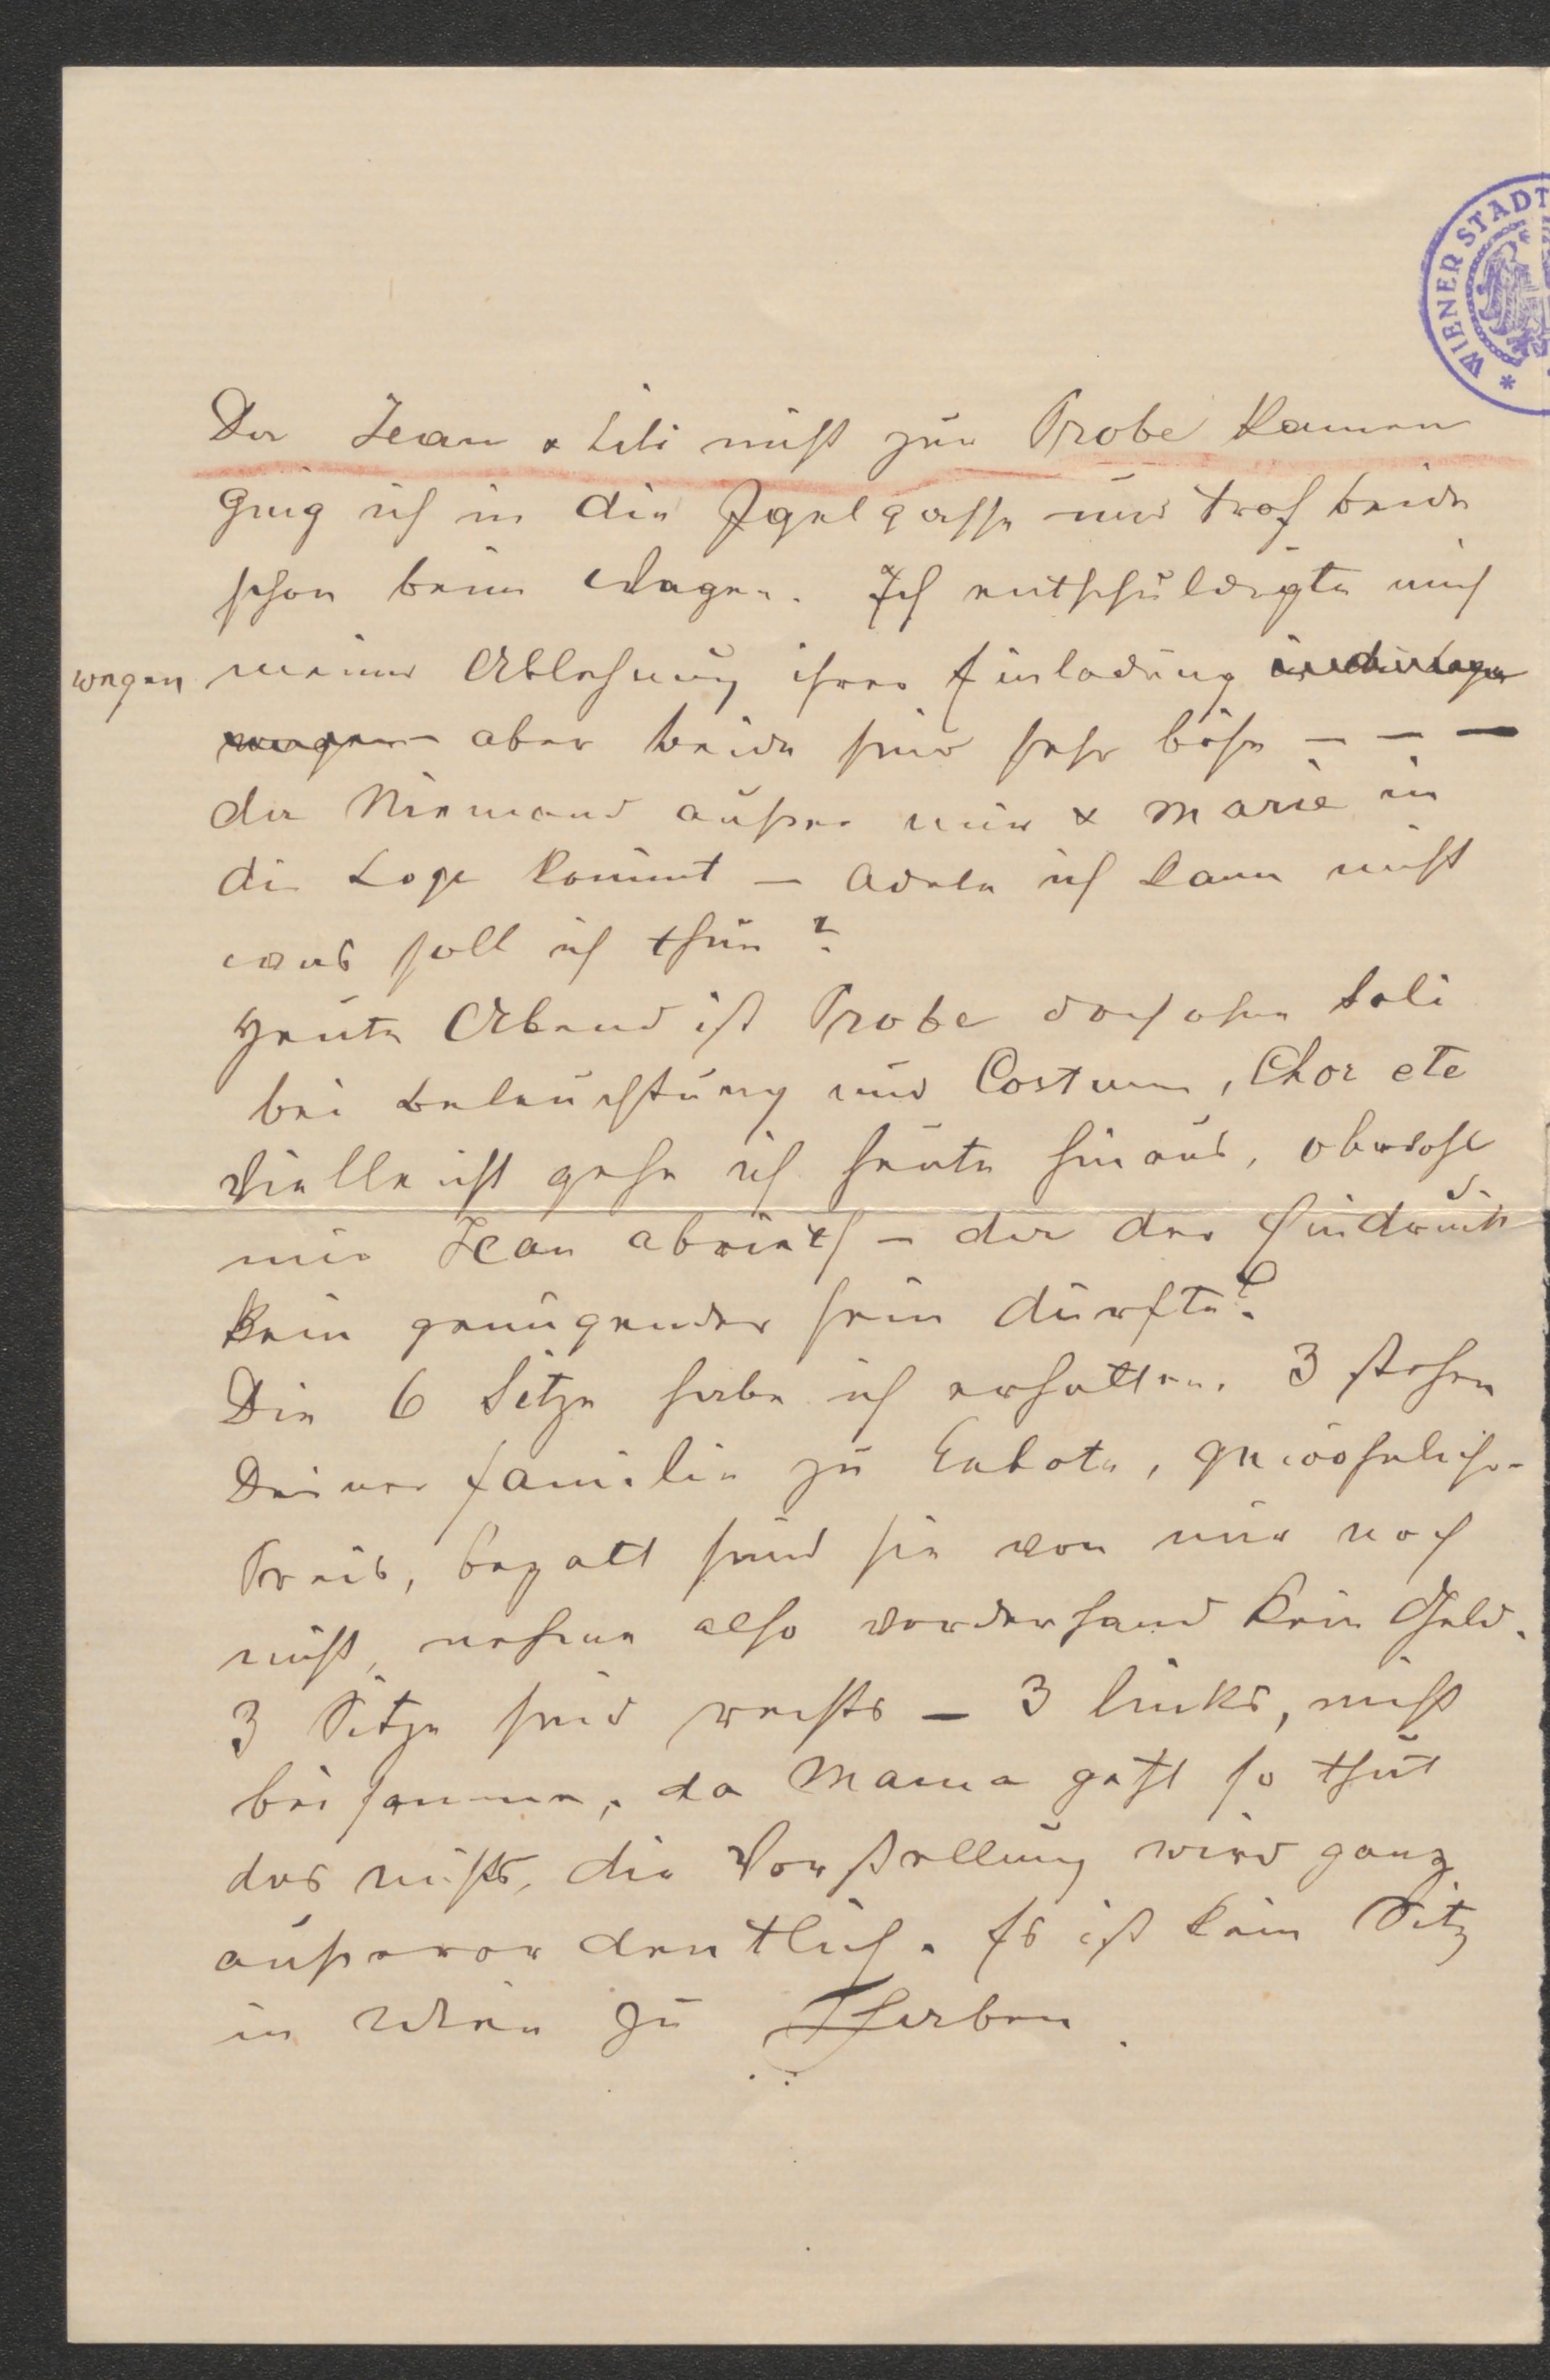 WIENER STADT
Da Jean & Lili nicht zur Probe kamen
ging ich in die Igelgasse und traf beide
schon beim Wagen. Ich entschuldigte mich
wegen meiner Ablehnung ihrer Einladung
aber beide sind sehr böse – – –
da Niemand außer mir & Marie in
die Loge kommt – Adele ich kann nicht
was soll ich thun?
Heute Abend ist Probe doch ohne Soli
bei Beleuchtung und Costum, Chor etc
Vielleicht gehe ich heute hinaus, obwohl
mir Jean abrieth – da der Eindruck
kein genügender sein dürfte?
Die 6 Sitze habe ich erhalten. 3 stehen
Deiner Familie zu Gebote, gewöhnlicher
Preis, bezalt sind sie von mir noch
nicht, nehme also vorderhand kein Geld.
3 Sitze sind rechts – 3 links, nicht
beisammen, da Mama geht so thut
das nichts, die Vorstellung wird ganz
außerordentlich. Es ist kein Sitz
in Wien zu Haben.